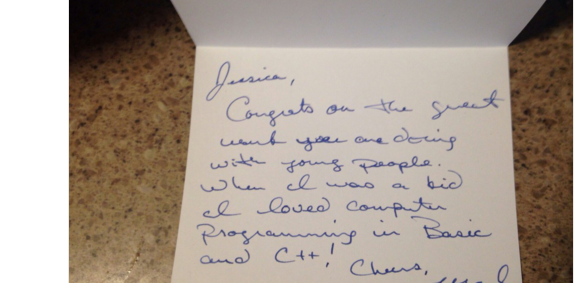 Jessica,
Congrats on the great
work you are doing
with young people.
When I was a kid
I loved computer
Programming in Basic
and C++!
Cheers,